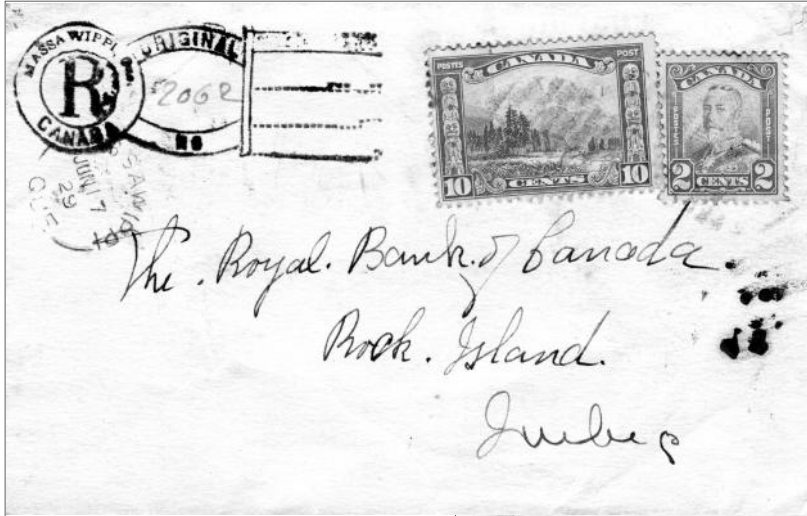 MASSAWIPPI, Que.
R
CANADA
ORIGINAL
2062
No
SAWIP
JUN 17
29
QUE
POSTES POST
CANADA
10 CENTS 10
CANADA
POSTES POST
2 CENTS 2
The . Royal . Bank . of Canada .
Rock . Island .
Quebec